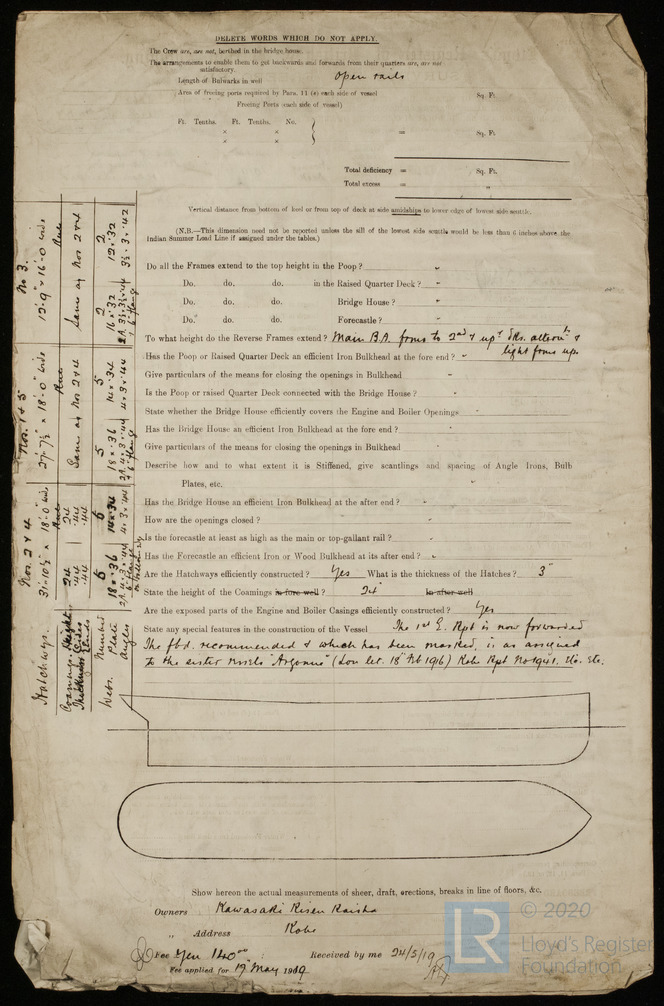 DELETE WORDS WHICH DO NOT APPLY.
The Crew are, are not, berthed in the bridge house.
The arrangements to enable them to get backwards and forwards from their quarters are, are not
satisfactory.
Length of Bulwarks in well open rails
Area of freeing ports required by Para. 11 (e) each side of vessel Sq. Ft.
Freeing Ports (each side of vessel)
Ft. Tenths. Ft. Tenths. No.
× × = Sq. Ft.
× ×
Total deficiency = Sq. Ft.
Total excess = "
Vertical distance from bottom of keel or from top of deck at side amidships to lower edge of lowest side scuttle.
(N.B.—This dimension need not be reported unless the sill of the lowest side scuttle would be less than 6 inches above the
Indian Summer Load Line if assigned under the tables.)
Do all the Frames extend to the top height in the Poop?
Do. do. do. in the Raised Quarter Deck?
Do. do. do. Bridge House?
Do. do. do. Forecastle?
To what height do the Reverse Frames extend? Main B.A. frms to 2nd & upr Dks. alternly &
light frms up.
Has the Poop or Raised Quarter Deck an efficient Iron Bulkhead at the fore end?
Give particulars of the means for closing the openings in Bulkhead
Is the Poop or raised Quarter Deck connected with the Bridge House?
State whether the Bridge House efficiently covers the Engine and Boiler Openings
Has the Bridge House an efficient Iron Bulkhead at the fore end?
Give particulars of the means for closing the openings in Bulkhead
Describe how and to what extent it is Stiffened, give scantlings and spacing of Angle Irons, Bulb
Plates, etc.
Has the Bridge House an efficient Iron Bulkhead at the after end?
How are the openings closed?
Is the forecastle at least as high as the main or top-gallant rail?
Has the Forecastle an efficient Iron or Wood Bulkhead at its after end?
Are the Hatchways efficiently constructed? Yes What is the thickness of the Hatches? 3"
State the height of the Coamings in fore well? 24" In after well
Are the exposed parts of the Engine and Boiler Casings efficiently constructed? Yes
State any special features in the construction of the Vessel The 1st E. Rpt is now forwarded
The fbd. recommended & which has been marked, is as assigned
to the sister vessels "Argonne" (Lon let. 18th Feb 1916) Kobe Rpt No 1951. Etc. Etc.
Hatchways. Nos. 2 & 4 Nos. 1 & 5 No 3.
31'-10½" × 18'-0" wide 27'-7½" × 18'-0" wide 12'-9" × 16'-0" wide
Coamings. Height
Thickness Sides
Ends
24 24
.44 .44
.44 .44
Same as Nos 2 & 4 Same as Nos 2 & 4
Webs. Number 6 6 5 5 2 2
Plate 18 × .36 14 × .34 18 × .36 14 × .34 16 × .32 12 × .32
Angles
Show hereon the actual measurements of sheer, draft, erections, breaks in line of floors, &c.
Owners Kawasaki Kisen Kaisha
" Address Kobe
Fee Yen 140.00 : Received by me 24/5/19
Fee applied for 19th May 1919.
LR © 2020
Lloyd's Register
Foundation